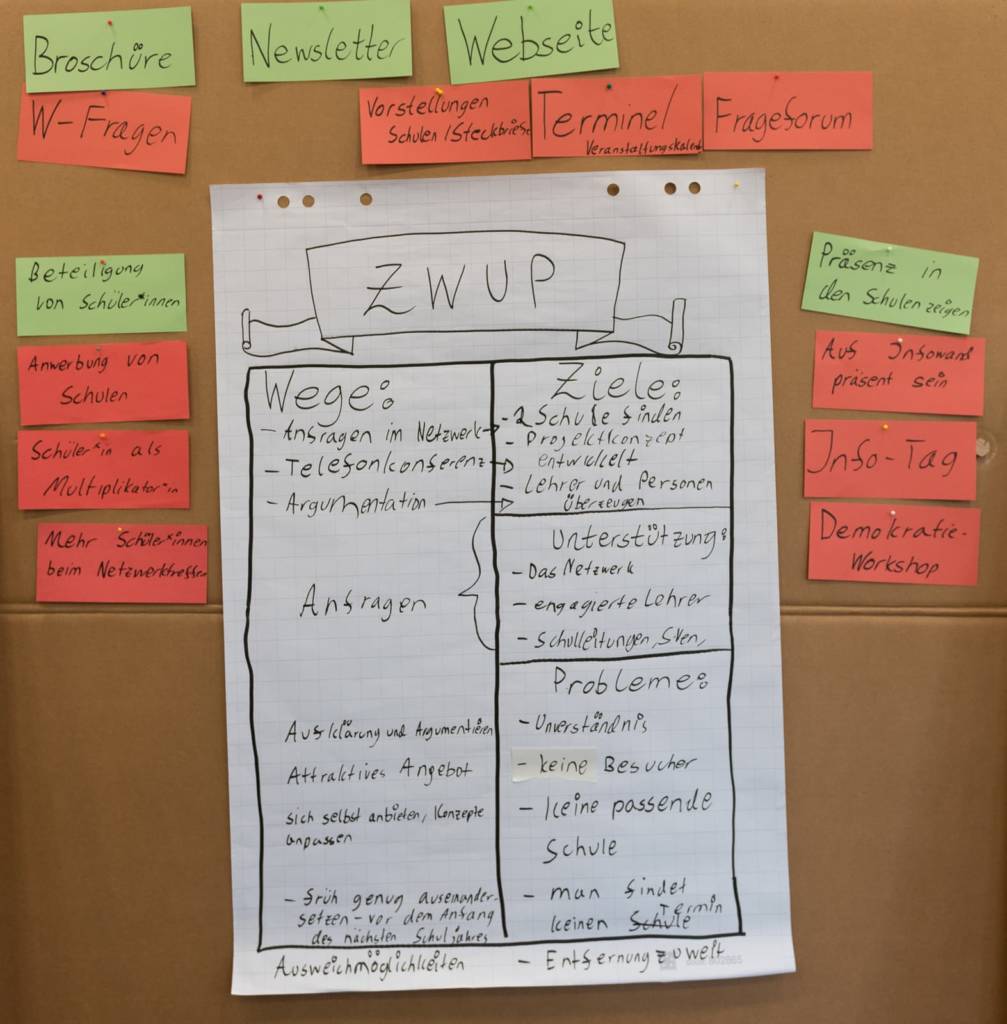 Broschüre
Newsletter
Webseite
W-Fragen
Vorstellungen
Schulen / Steckbriefe
Termine/
Veranstaltungskalend
Frageforum
Beteiligung
von Schüler*innen
Anwerbung von
Schulen
Schüler*in als
Multiplikator*in
Mehr Schüler*innen
beim Netzwerktreffen
Präsenz in
den Schulen zeigen
Auf Infowand
präsent sein
Info-Tag
Demokratie-
Workshop
ZWUP
Wege:
- Anfragen im Netzwerk
- Telefonkonferenz
- Argumentation
Anfragen
Aufklärung und Argumentieren
Attraktives Angebot
sich selbst anbieten, Konzepte
anpassen
- früh genug auseinander-
setzen - vor dem Anfang
des nächsten Schuljahres
Ausweichmöglichkeiten
Ziele:
- 2 Schule finden
- Projektkonzept
entwickelt
- Lehrer und Personen
überzeugen
Unterstützung:
- Das Netzwerk
- engagierte Lehrer
- Schulleitungen, Sven,
Probleme:
- Unverständnis
- keine Besucher
- keine passende
Schule
- man findet
keinen Schule Termin
- Entfernung zu weit